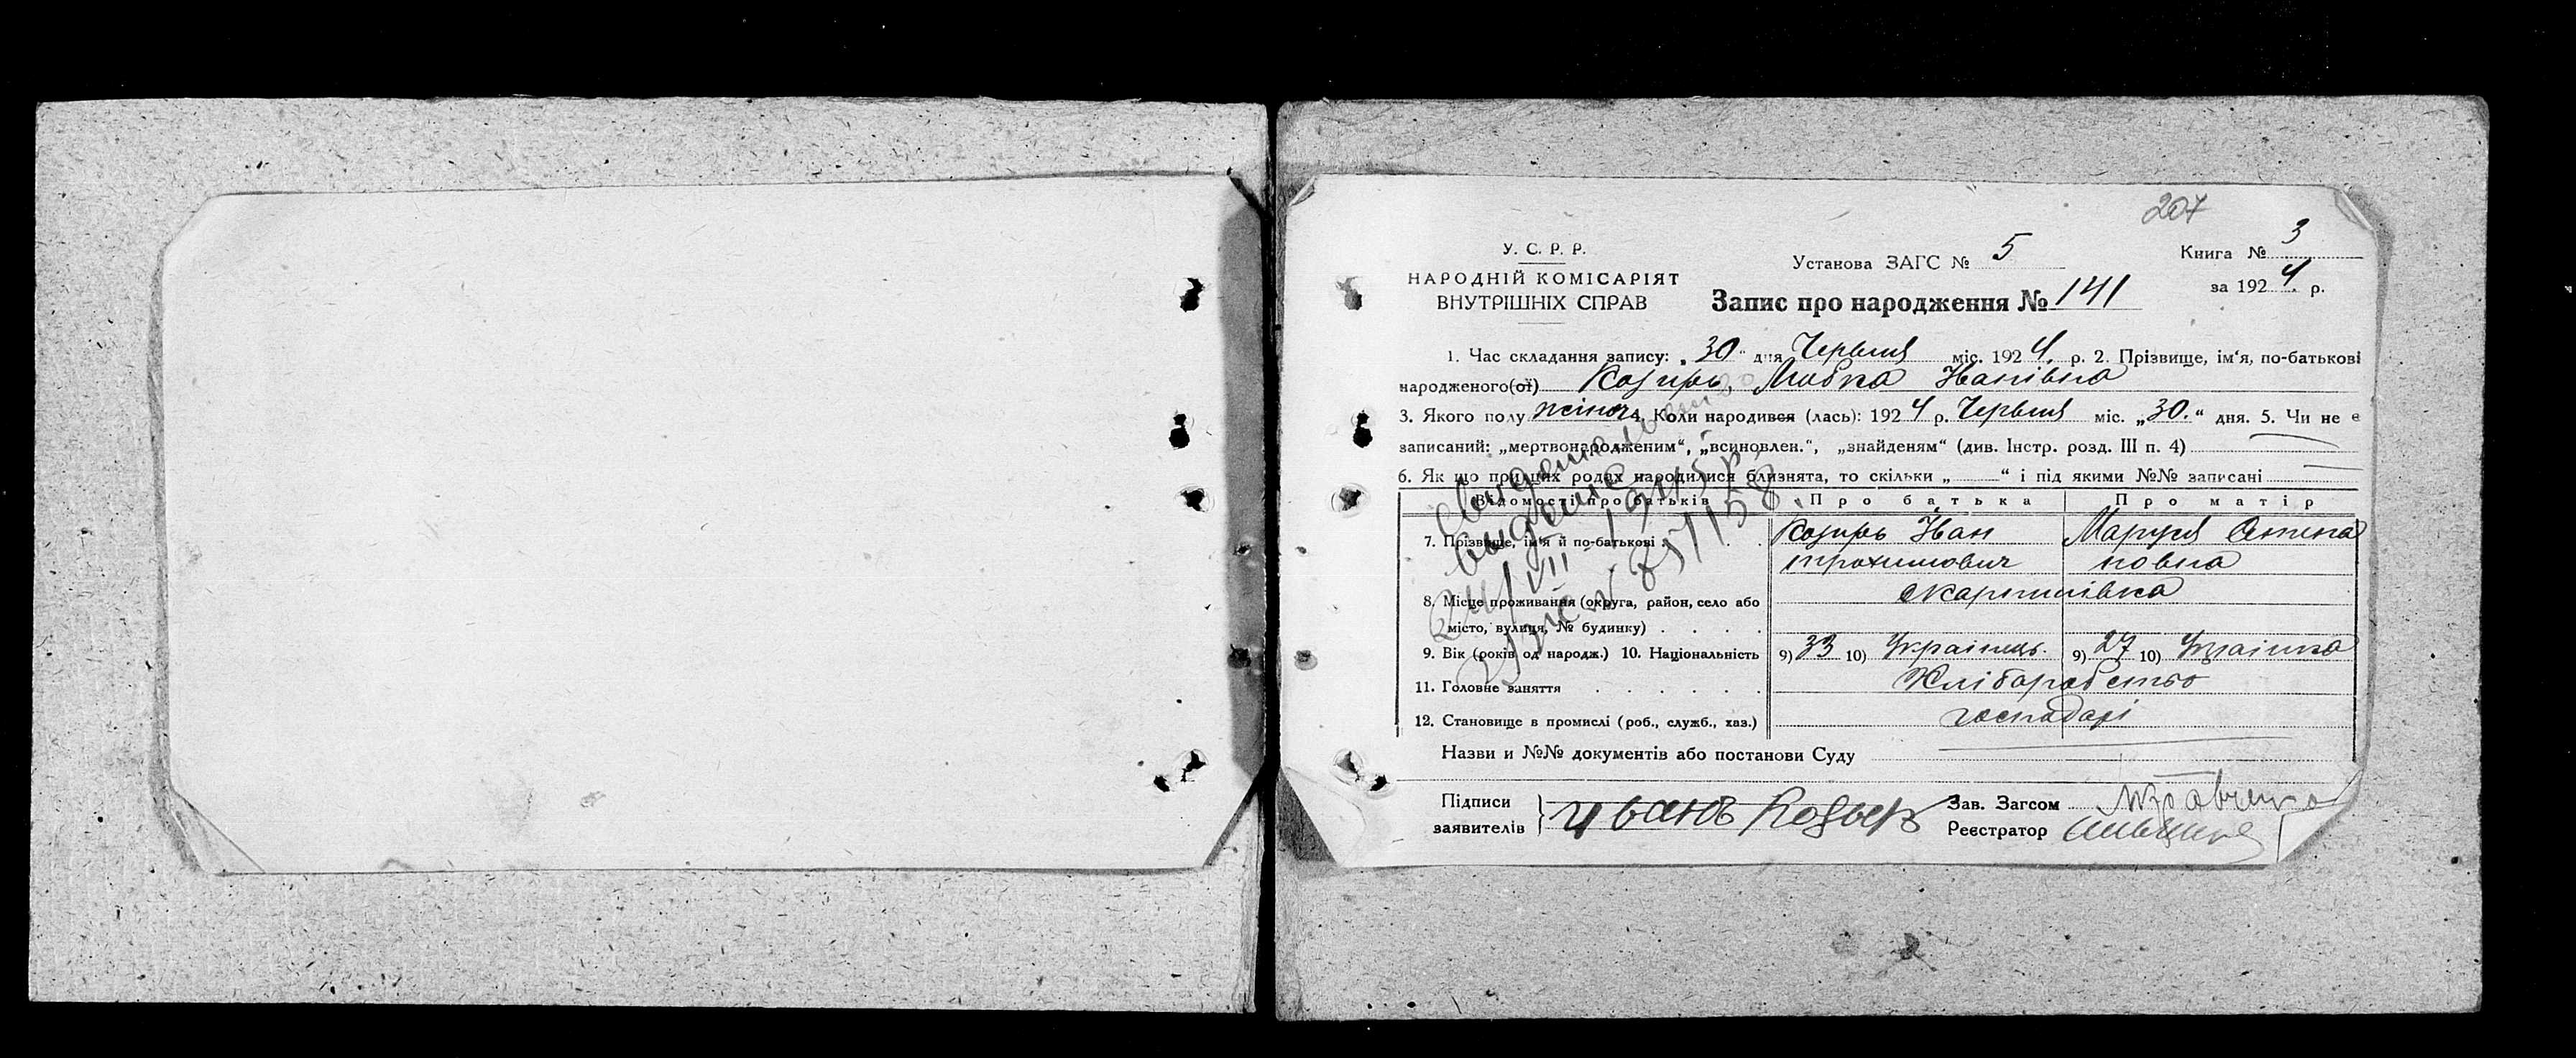 207
У. С. Р. Р.
НАРОДНІЙ КОМІСАРІЯТ
ВНУТРІШНІХ СПРАВ
Установа ЗАГС № 5
Книга № 3
за 1924 р.
Запис про народження № 141
1. Час складання запису: „30“ дня Червня міс. 1924. р. 2. Прізвище, ім‘я, по-батькові
народженого(ої) Козирь, Любка Іванівна
3. Якого полу жіноч. 4. Коли народився (лась): 1924 р. Червня міс. „30.“ дня. 5. Чи не є
записаний: „мертвонародженим“, „всиновлен.“, „знайденям“ (див. Інстр. розд. III п. 4)
6. Як що при цих родах народилися близнята, то скільки „ “ і під якими №№ записані
Відомості про батьків Про батька Про матір
7. Прізвище, ім‘я й по-батькові Козирь Іван Маруся
Трохимович
8. Місце проживання (округа, район, село або
місто, вулиця, № будинку)
9. Вік (років од народж.) 10. Національність 9) 33 10) Українець. 9) 27 10) Українка
11. Головне заняття Хліборобство
12. Становище в промислі (роб., служб., хаз.) господарі
Назви и №№ документів або постанови Суду
Підписи
заявителів
Иванъ
Зав. Загсом
Реєстратор
выдано
24/VII 1945 г.